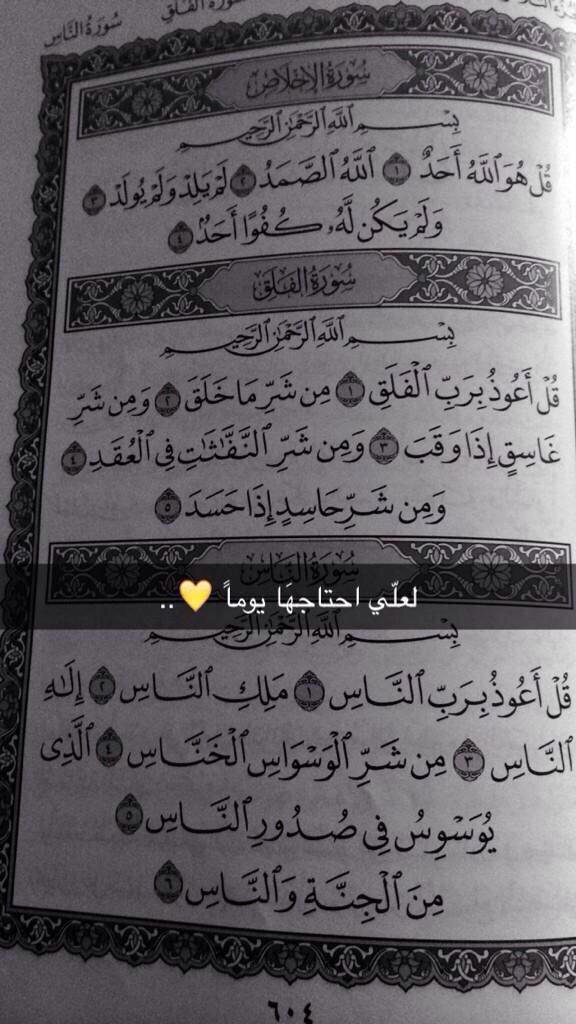 سُورَةُ الفَلَقِ
سُورَةُ النَّاسِ
سُورَةُ الإِخْلَاصِ
بِسْمِ ٱللَّهِ ٱلرَّحْمَٰنِ ٱلرَّحِيمِ
قُلْ هُوَ ٱللَّهُ أَحَدٌ ١ ٱللَّهُ ٱلصَّمَدُ ٢ لَمْ يَلِدْ وَلَمْ يُولَدْ ٣
وَلَمْ يَكُن لَّهُۥ كُفُوًا أَحَدٌۢ ٤
سُورَةُ الفَلَقِ
بِسْمِ ٱللَّهِ ٱلرَّحْمَٰنِ ٱلرَّحِيمِ
قُلْ أَعُوذُ بِرَبِّ ٱلْفَلَقِ ١ مِن شَرِّ مَا خَلَقَ ٢ وَمِن شَرِّ
غَاسِقٍ إِذَا وَقَبَ ٣ وَمِن شَرِّ ٱلنَّفَّٰثَٰتِ فِى ٱلْعُقَدِ ٤
وَمِن شَرِّ حَاسِدٍ إِذَا حَسَدَ ٥
سُورَةُ النَّاسِ
لعلّي احتاجهَا يوماً 💛 ..
بِسْمِ ٱللَّهِ ٱلرَّحْمَٰنِ ٱلرَّحِيمِ
قُلْ أَعُوذُ بِرَبِّ ٱلنَّاسِ ١ مَلِكِ ٱلنَّاسِ ٢ إِلَٰهِ
ٱلنَّاسِ ٣ مِن شَرِّ ٱلْوَسْوَاسِ ٱلْخَنَّاسِ ٤ ٱلَّذِى
يُوَسْوِسُ فِى صُدُورِ ٱلنَّاسِ ٥
مِنَ ٱلْجِنَّةِ وَٱلنَّاسِ ٦
٦٠٤